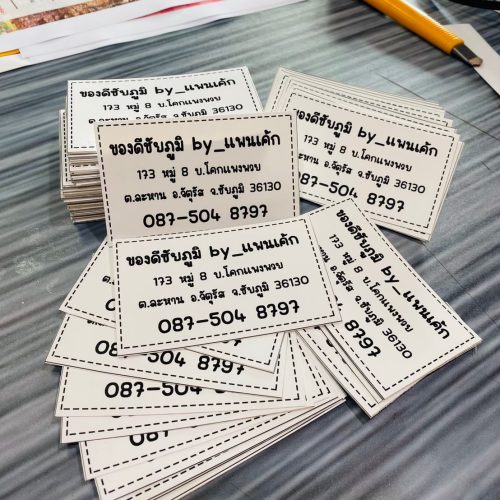 ของดีชัยภูมิ by_แพนเค้ก
173 หมู่ 8 บ.โคกแพงพวย
ต.ละหาน อ.จัตุรัส จ.ชัยภูมิ 36130
ของดีชัยภูมิ by_แพนเค้ก
173 หมู่ 8 บ.โคกแพงพวย
ต.ละหาน อ.จัตุรัส จ.ชัยภูมิ 36130
087-504 8797
ของดีชัยภูมิ by_แพนเค้ก
173 หมู่ 8 บ.โคกแพงพวย
ต.ละหาน อ.จัตุรัส จ.ชัยภูมิ 36130
087-504 8797
ของดีชัยภูมิ by_แพนเค้ก
173 หมู่ 8 บ.โคกแพงพวย
ต.ละหาน อ.จัตุรัส จ.ชัยภูมิ 36130
087-504 8797
ของดีชัยภูมิ by_แพนเค้ก
173 หมู่ 8 บ.โคกแพงพวย
อ.จัตุรัส จ.ชัยภูมิ 36130
8797
087-504 8797
087-504 8797
087-504 8797
087-504